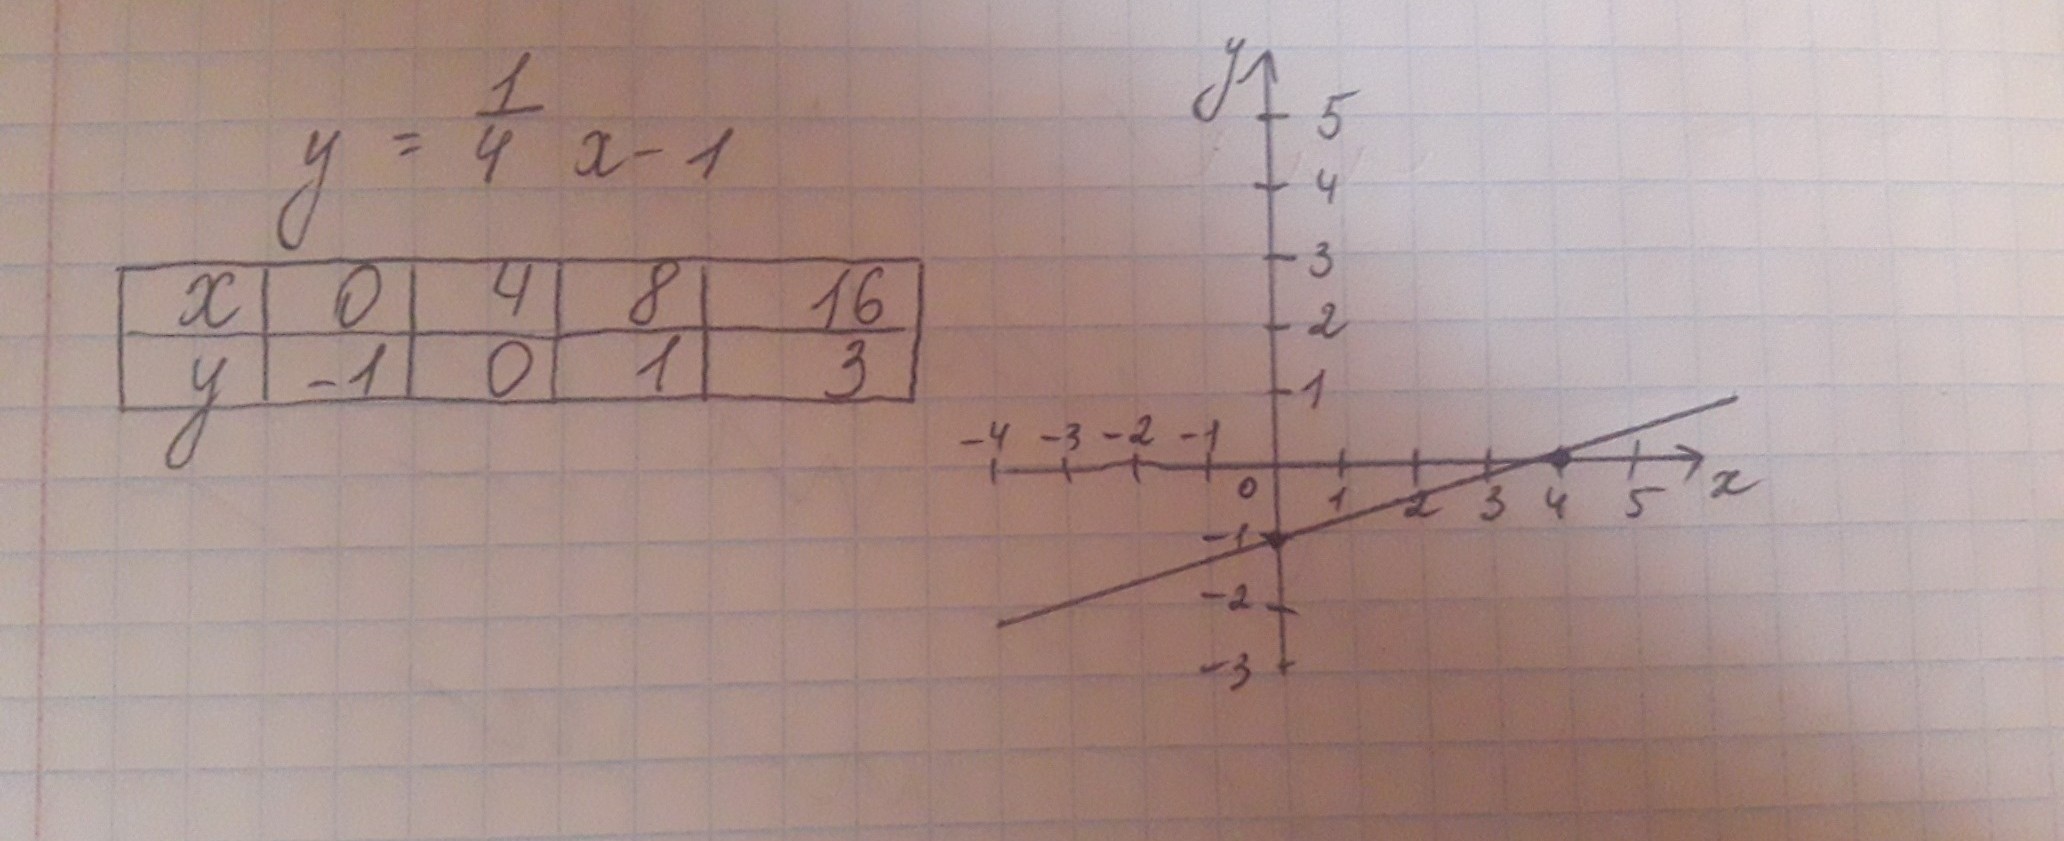 y = 1/4 x - 1
x 0 4 8 16
y -1 0 1 3
y
5
4
3
2
1
-4 -3 -2 -1
0 1 2 3 4 5 x
-1
-2
-3